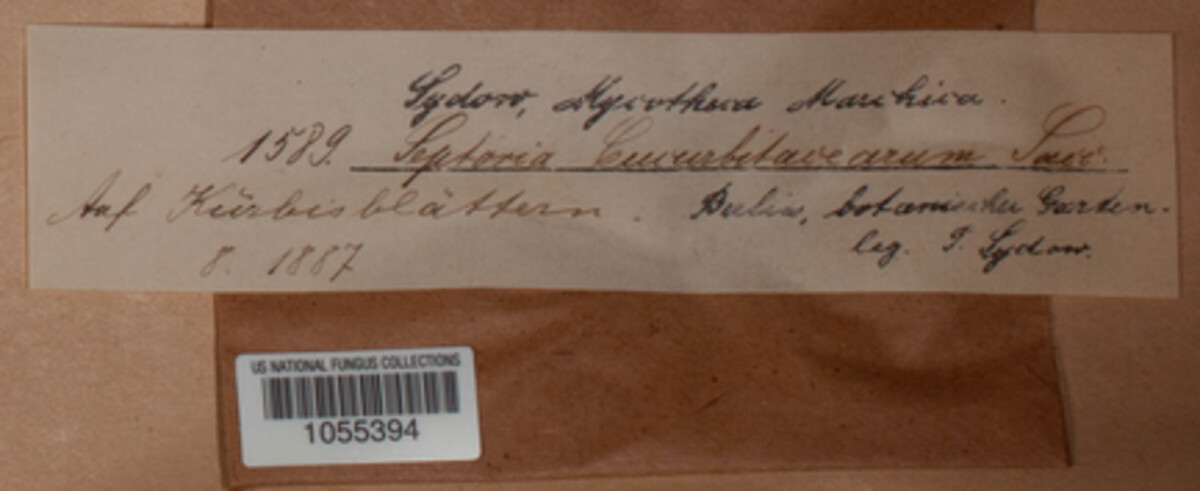 Sydow, Mycotheca Marchica.
1589. Septoria Cucurbitacearum Sacc.
Auf Kürbisblättern. Berlin, botanischer Garten.
8. 1887 leg. P. Sydow.
US NATIONAL FUNGUS COLLECTIONS
1055394